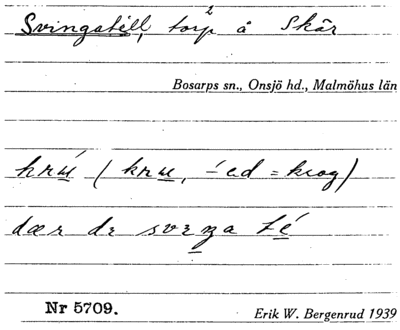 Svingatill, torp å Skår
2
Bosarps sn., Onsjö hd., Malmöhus län
krú (kru, -́ed = krog)
dær de sveŋa té
Nr 5709.
Erik W. Bergenrud 1939